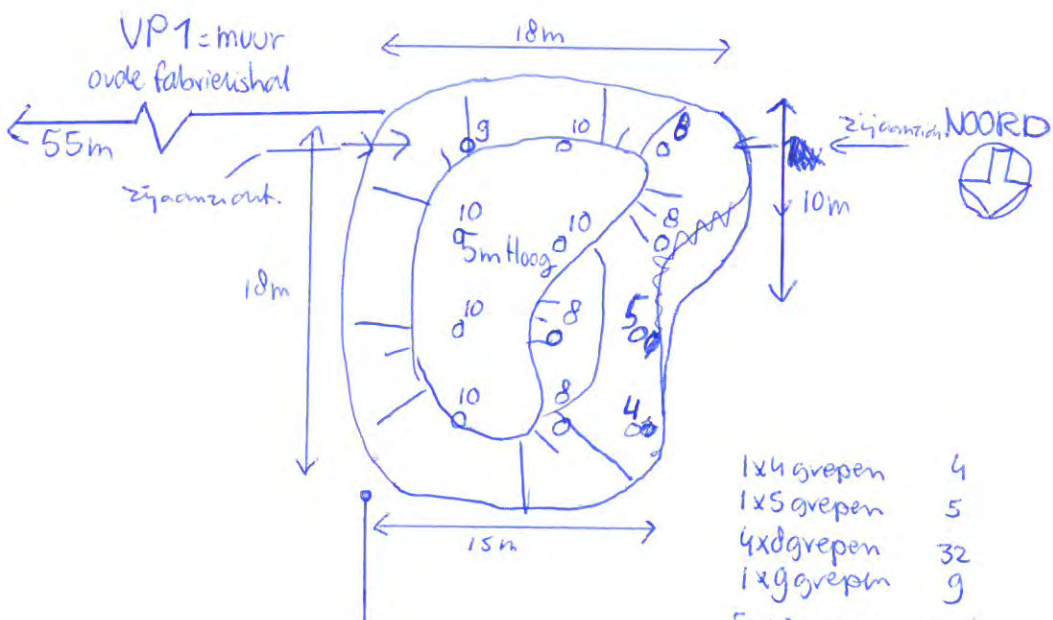 VP1 = muur
oude fabriekshal
18m
NOORD
zijaanzicht
55m
zijaanzicht.
9
10
8
10m
10
10
8
5m Hoog
18m
10
8
5
10
8
4
15m
1x4 grepen 4
1x5 grepen 5
4x8 grepen 32
1x9 grepen 9